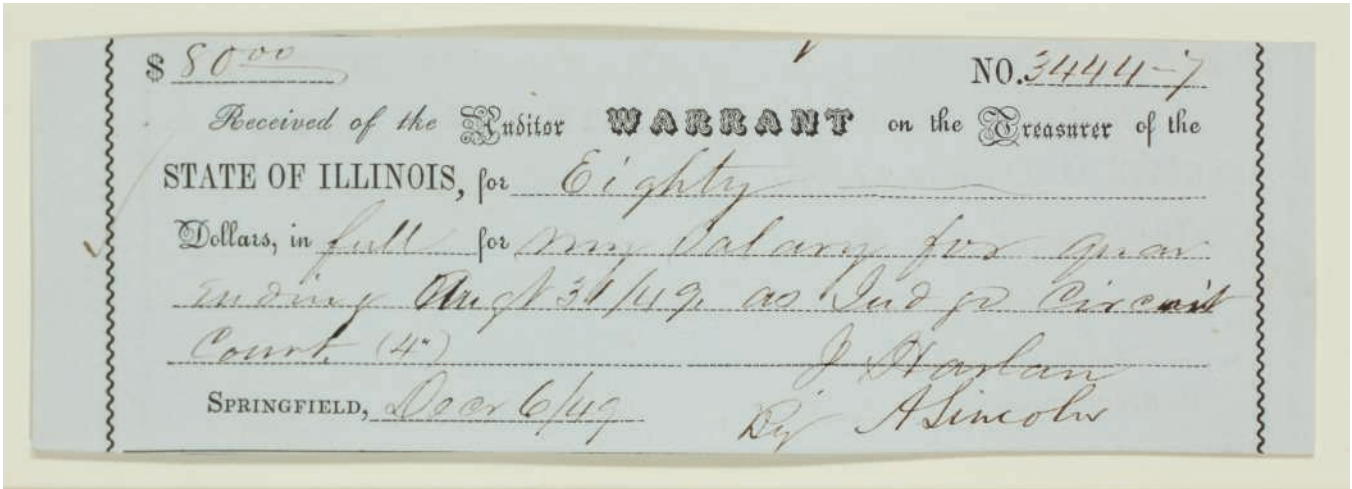 $ 80 00 NO. 3444-7
Received of the Auditor WARRANT on the Treasurer of the
STATE OF ILLINOIS, for Eighty
Dollars, in full for my Salary for quar
ending Augt 31/49 as Judge Circuit
Court. (4")
J Harlan
SPRINGFIELD, Decr 6/49
By A Lincoln